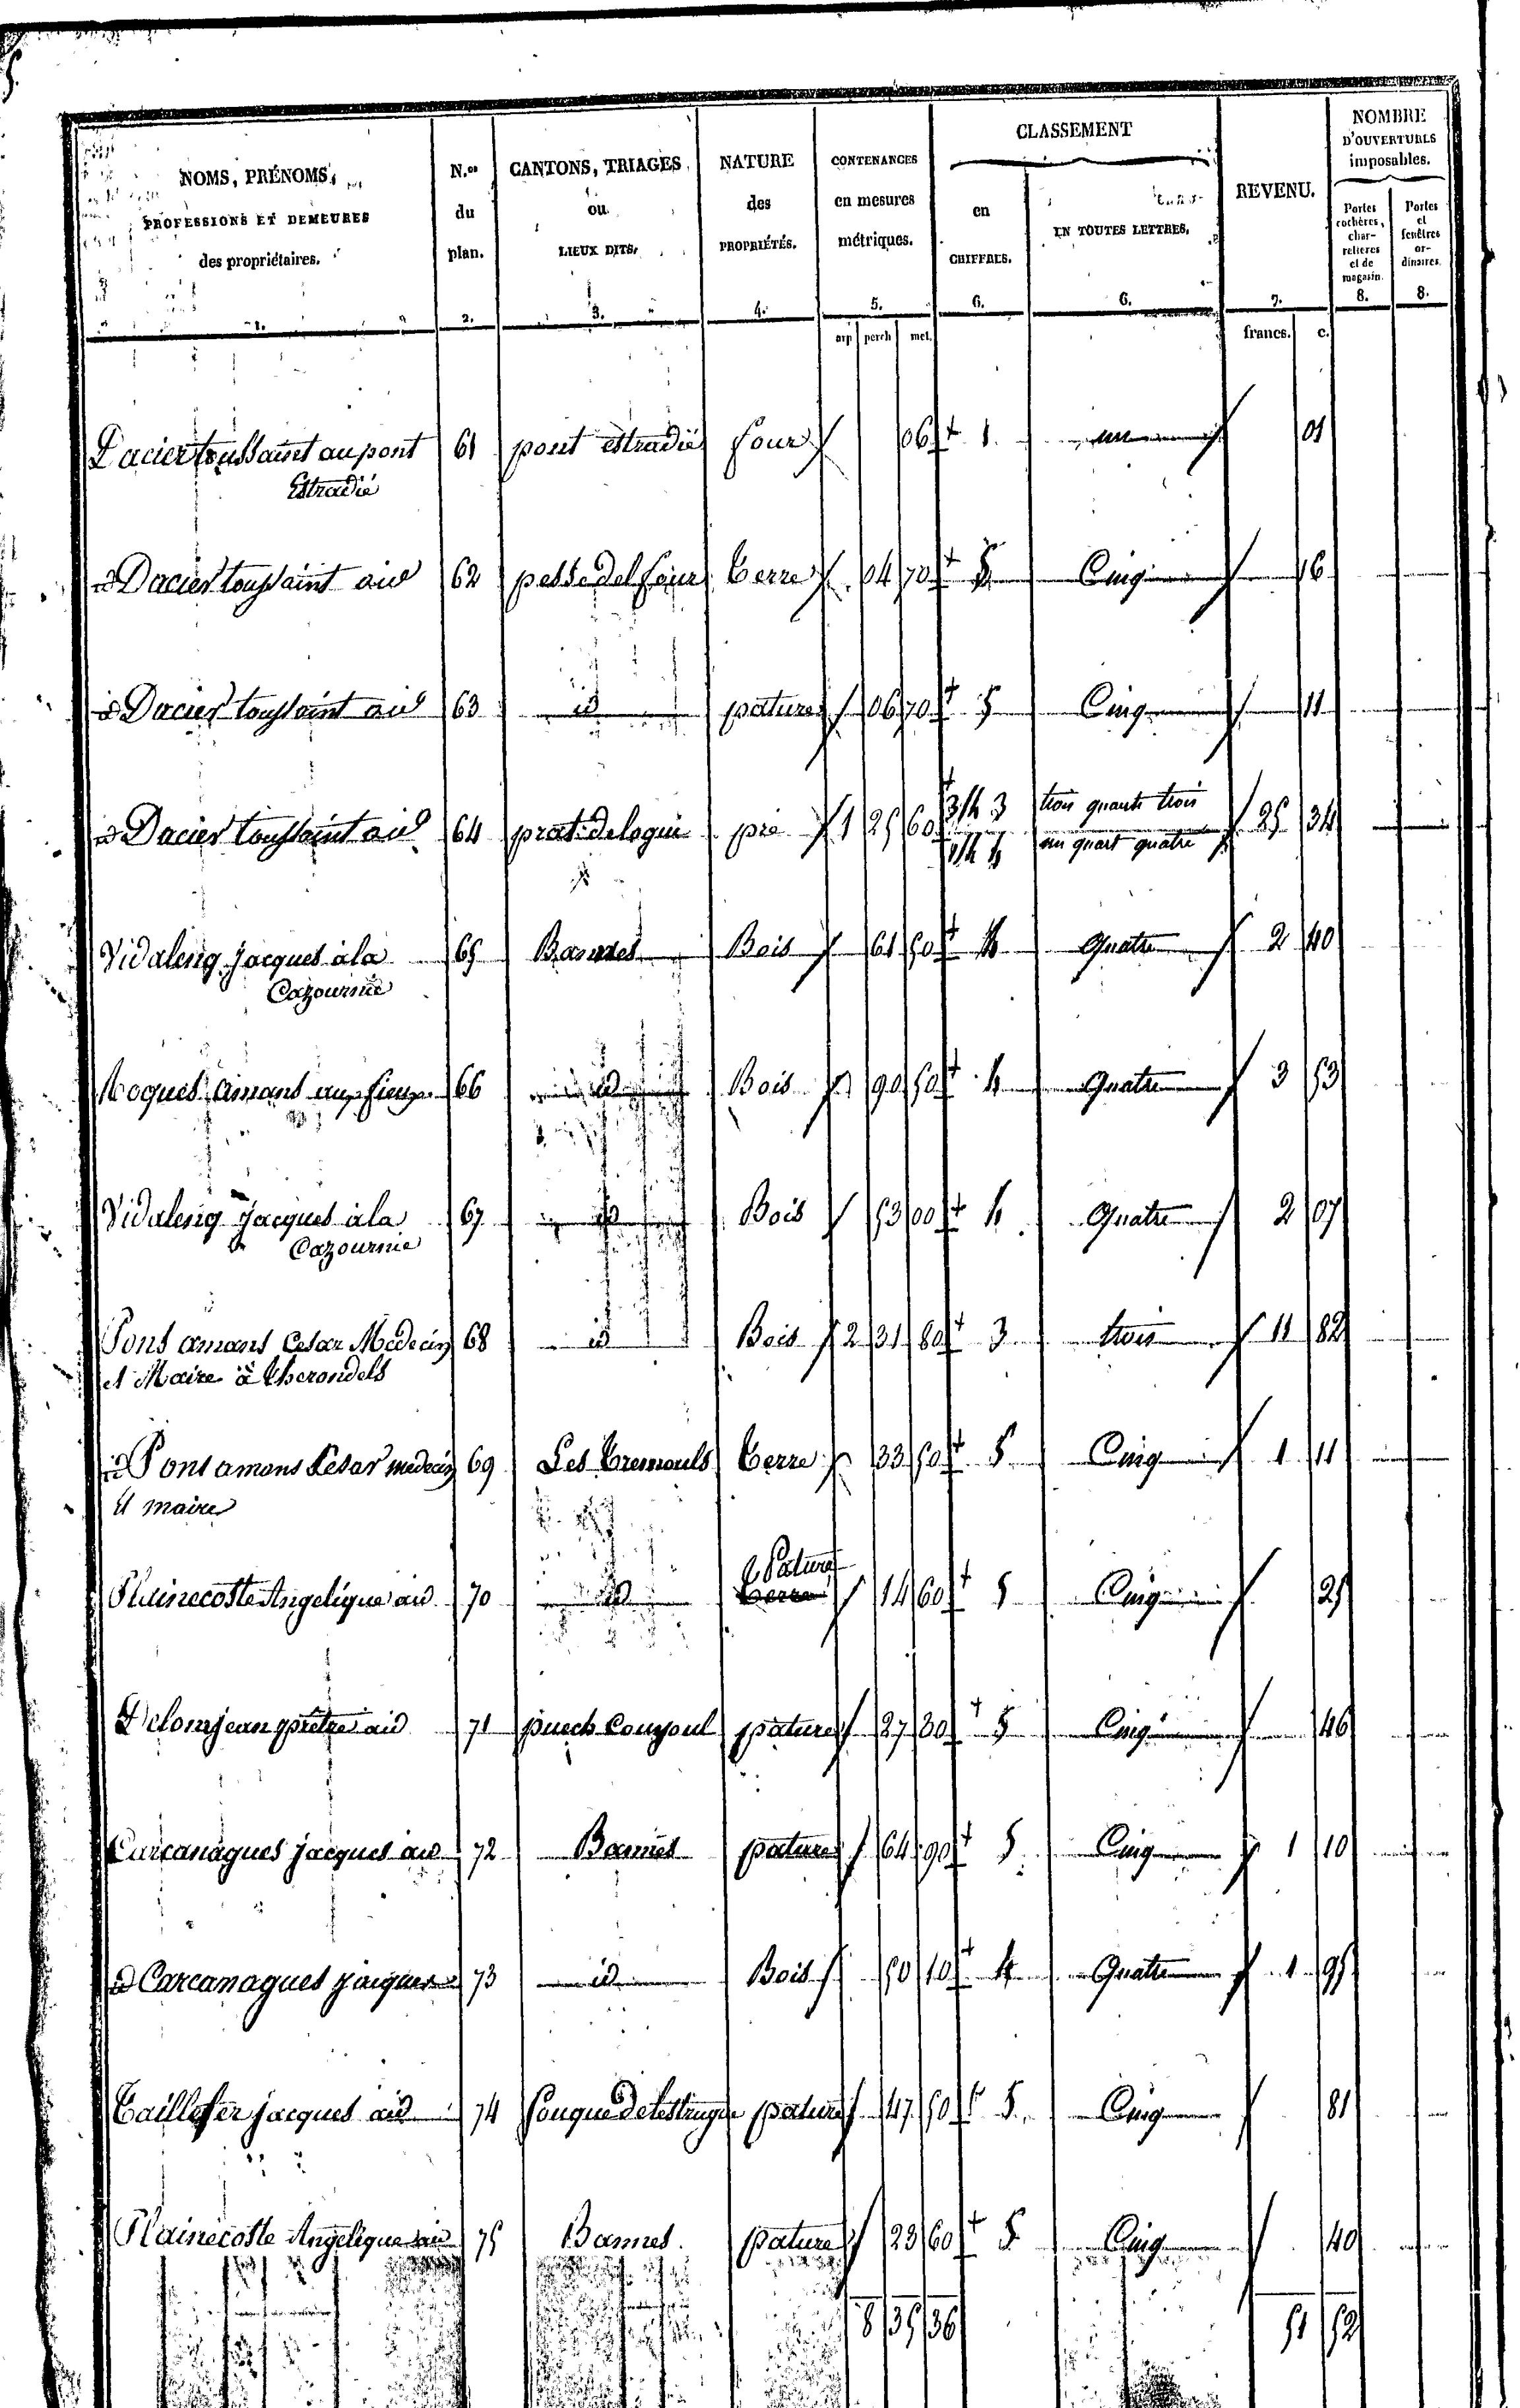 NOMS, PRÉNOMS, PROFESSIONS ET DEMEURES des propriétaires. 1.
N.os du plan. 2.
CANTONS, TRIAGES ou LIEUX DITS. 3.
NATURE des PROPRIÉTÉS. 4.
CONTENANCES en mesures métriques. 5.
CLASSEMENT
en CHIFFRES. 6.
EN TOUTES LETTRES. 6.
REVENU. 7.
NOMBRE D'OUVERTURES imposables.
Portes cochères, charretières et de magasin. 8.
Portes et fenêtres ordinaires. 8.
arp perch met. francs. c.
Dacier toussaint au pont 61 pont estradié four 06 1 un 01
Estradié
id Dacier toussaint aud 62 pesse del four terre 04 70 5 Cinq 16
id Dacier toussaint aud 63 id pature 06 70 5 Cinq 11
id Dacier toussaint aud 64 prat pré 1 25 60 3/4 3 trois quarts trois 25 34
1/4 4 un quart quatre
Vidalenq jacques à la 65 Bannes Bois 61 50 4 Quatre 2 40
Cazournie
Roques amans au fieux 66 id Bois 90 50 4 Quatre 3 53
Vidalenq jacques à la 67 id Bois 53 00 4 Quatre 2 07
Cazournie
Pons amans Cesar Medecin 68 id Bois 2 31 80 3 trois 11 82
et Maire à therondels
id Pons amans Cesar medecin 69 Les tremouls terre 33 50 5 Cinq 1 11
et maire
Pature
Plainecoste Angelique aud 70 id terre 14 60 5 Cinq 25
Delom jean prêtre aud 71 puech Couyoul pature 27 30 5 Cinq 46
Carcanagues jacques aud 72 Bannes pature 64 90 5 Cinq 1 10
id Carcanagues jacques 73 id Bois 50 10 4 Quatre 1 95
Taillefer jacques aud 74 pature 47 50 5 Cinq 81
Plainecoste Angelique aud 75 Bannes pature 23 60 5 Cinq 40
8 35 36 51 52